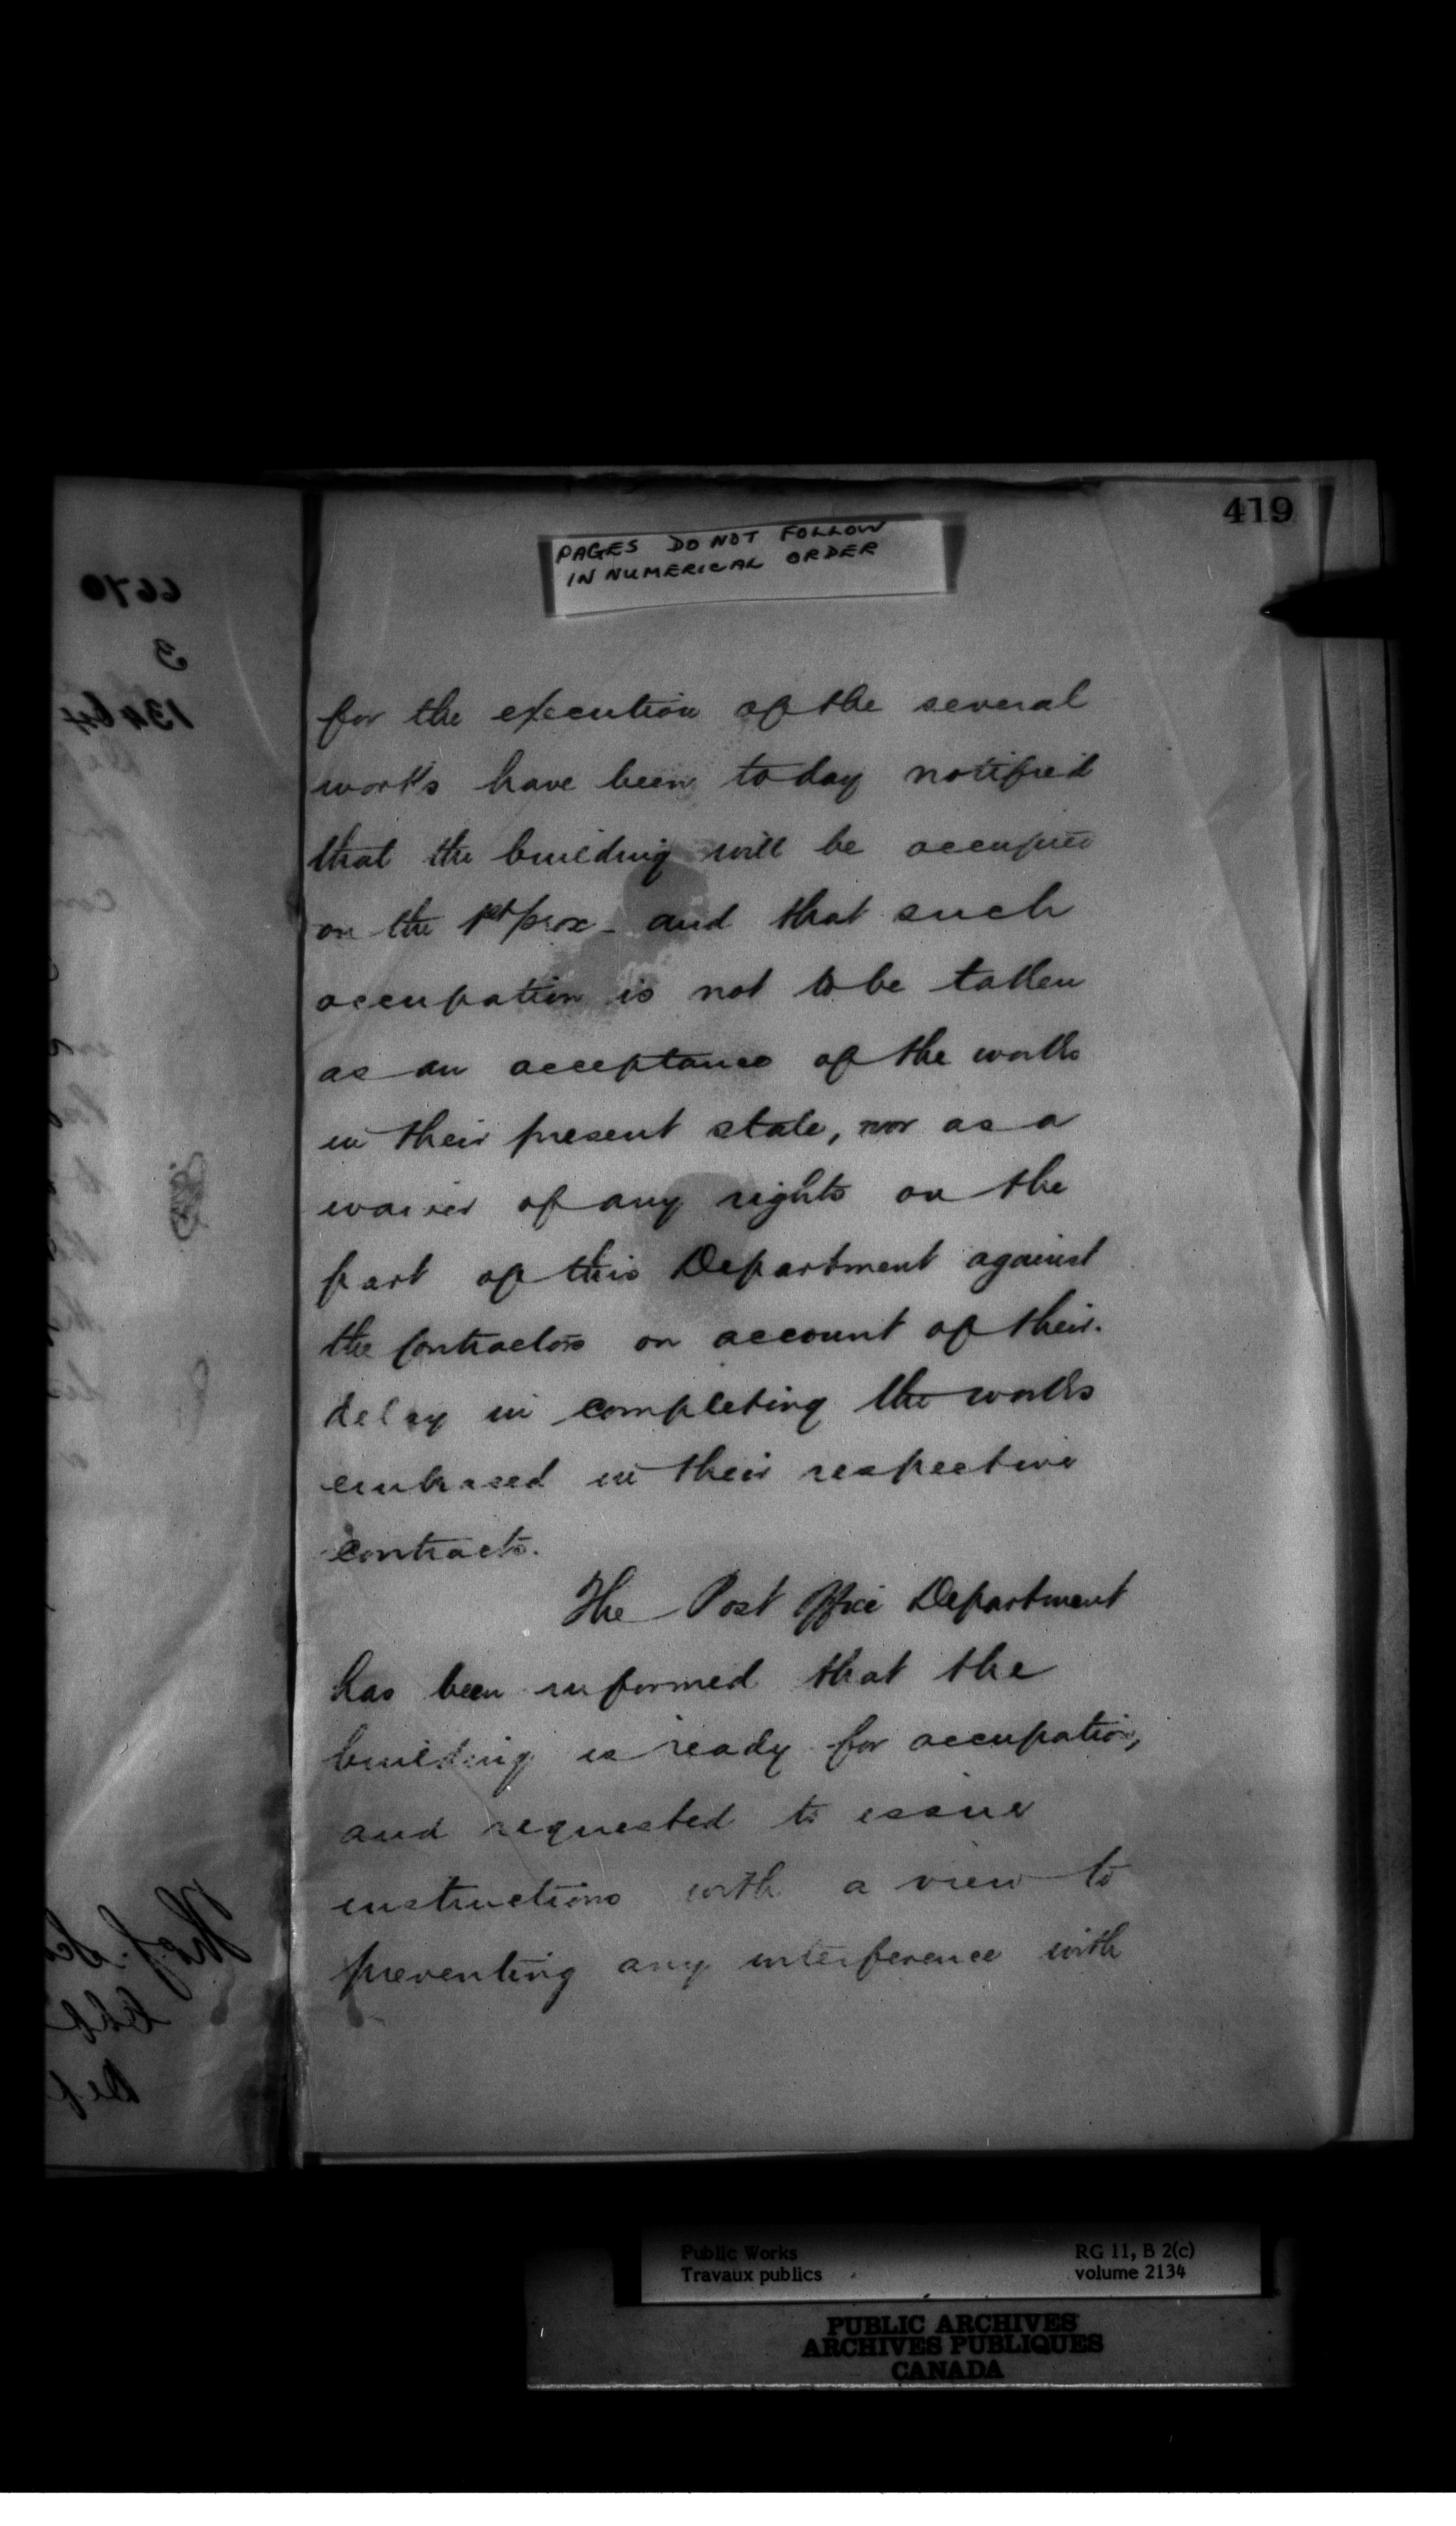 419
PAGES DO NOT FOLLOW
IN NUMERICAL ORDER
6670
3
for the execution of the several
works have been today notified
that the building will be occupied
on the 1st prox - and that such
occupation is not to be taken
as an acceptance of the works
in their present state, nor as a
waiver of any rights on the
part of this Department against
the contractors on account of their
delay in completing the works
embraced in their respective
contracts.
The Post Office Department
has been informed that the
building is ready for occupation,
and requested to issue
instructions with a view to
preventing any interference with
Public Works
Travaux publics
RG 11, B 2(c)
volume 2134
PUBLIC ARCHIVES
ARCHIVES PUBLIQUES
CANADA